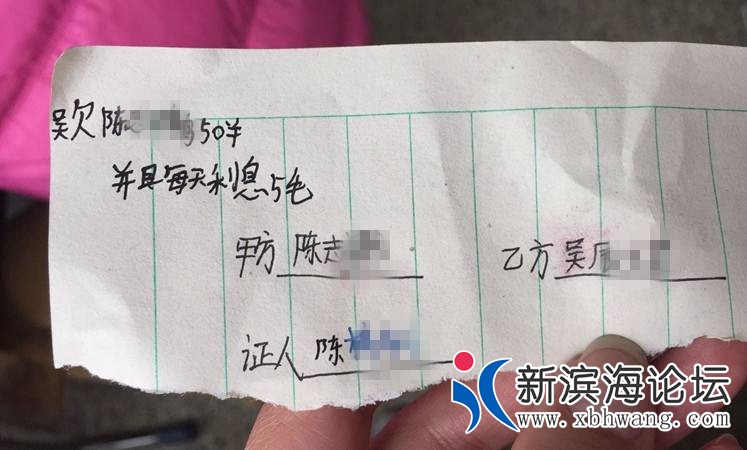 吴欠陈50羊
并具每天利息5毛
甲方 陈志
乙方 吴
证人 陈
新滨海论坛
www.xbhwang.com